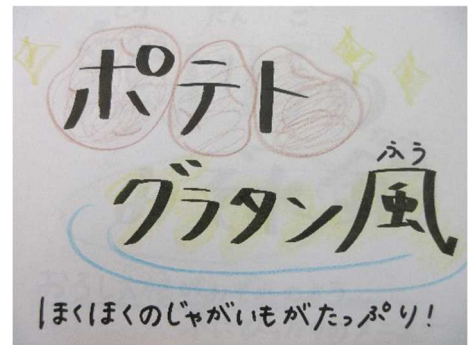 ポテト
ふう
グラタン風
ほくほくのじゃがいもがたっぷり!